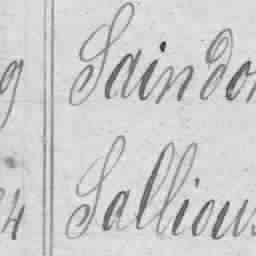 9 Saindon
4 Sallious